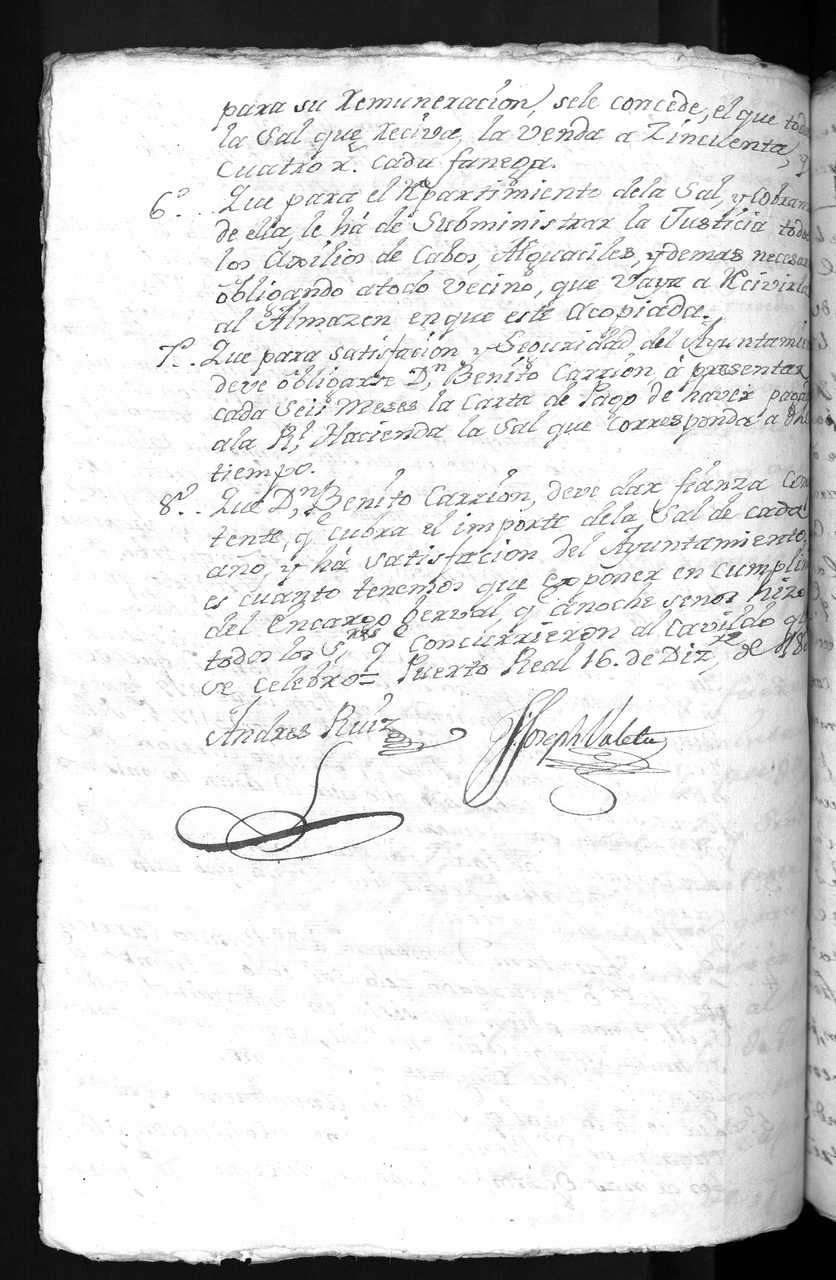 para su Remuneracion, sele concede, el que toda
la Sal que Reciva, la venda a Zincuenta, y
Cuatro r.^s cada fanega.
6.º.. Que para el Repartimiento dela Sal, y Cobran
de ella, le há de Subministrar la Justicia todos
los Auxilios de Cabos, Alguaciles, y demas necesar
obligando atodo Vecino, que Vaya a Recivirla
al Almazen en que este Acopiada.
7.º.. Que para satisfacion y Seguridad del Ayuntamie
deve obligarse D.ⁿ Benito Carrion á presentar
cada Seis Meses la Carta de Pago de haver paga
ala R.l Hacienda la Sal que Corresponda a dho
tiempo.
8.º.. Que D.ⁿ Benito Carrion, deve dar fianza Com
tente, q.e cubra el importe dela Sal de cada
año, y há satisfacion del Ayuntamiento,
es cuanto tenemos que exponer en cumplim
del Encargo berval q.e anoche señor hizo
todos los S.res q.e Concurrieron al Cavildo q
se celebro= Puerto Real 16. de Diz.re de 18
Andres Ruiz
Joseph